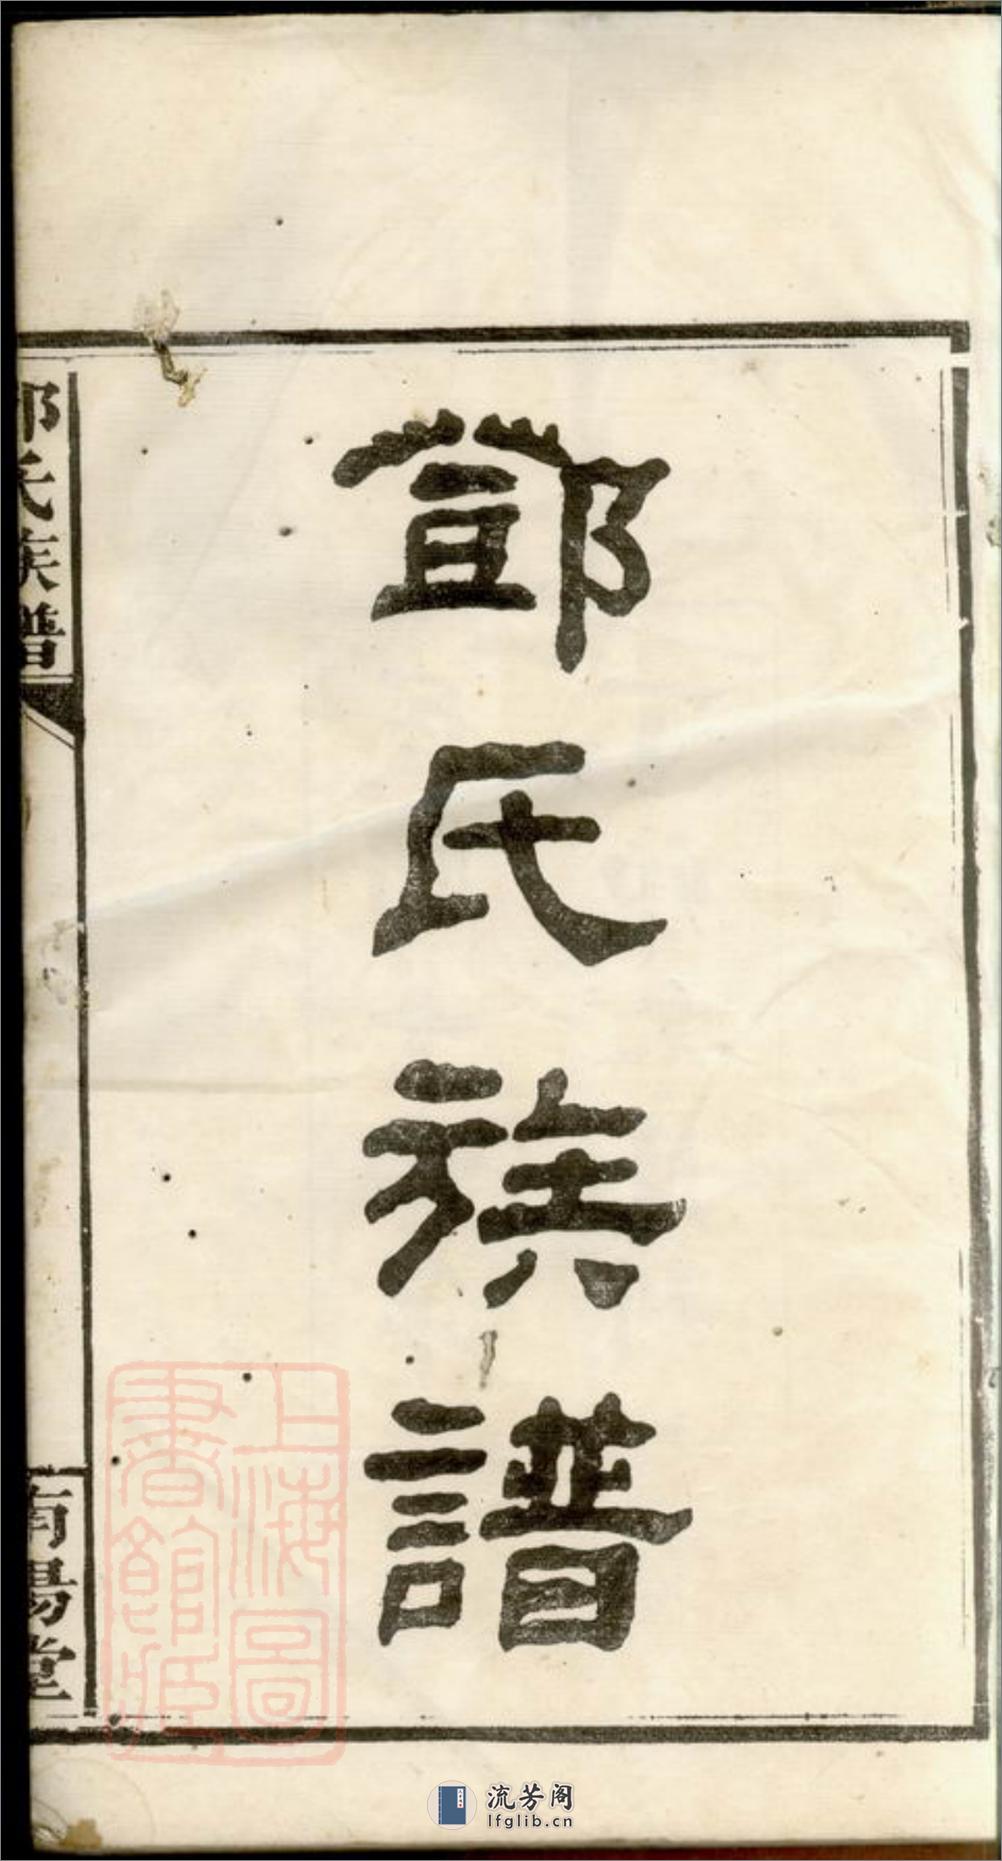 鄧氏族譜
鄧氏族譜
南陽堂
上海圖
書館藏
流芳阁
lfglib.cn